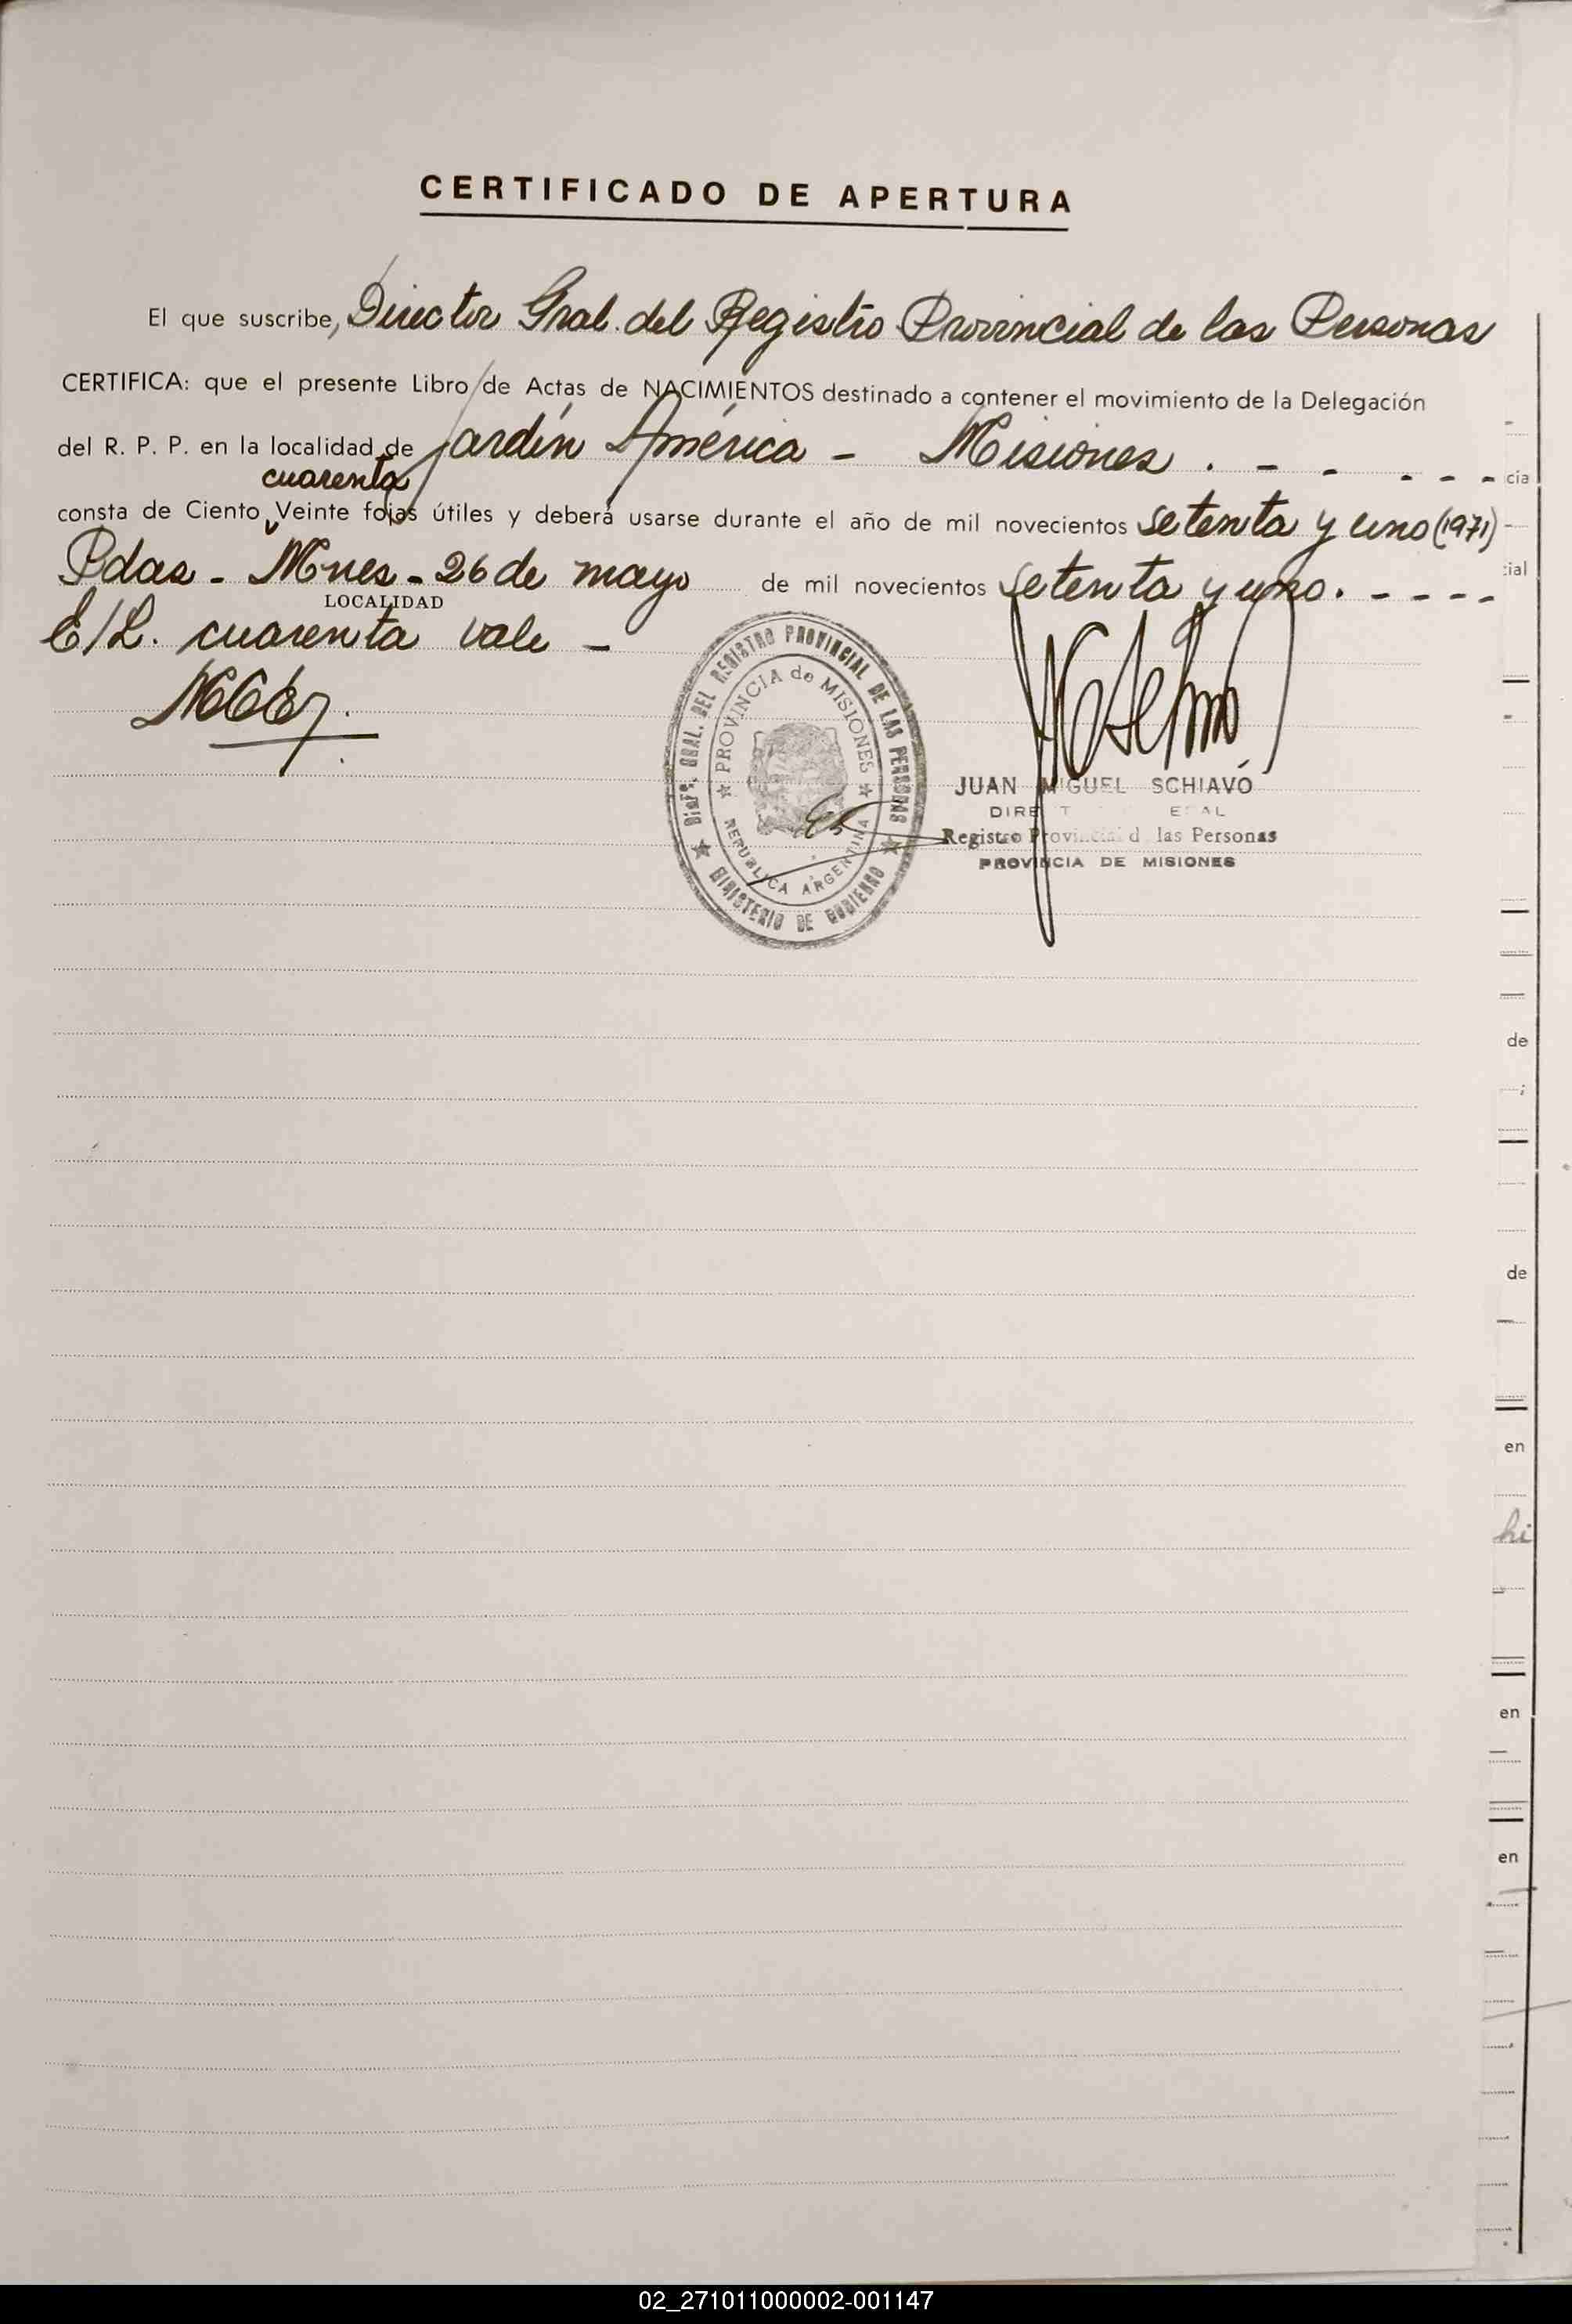 CERTIFICADO DE APERTURA
El que suscribe, Director Gral. del Registro Provincial de las Personas
CERTIFICA: que el presente Libro de Actas de NACIMIENTOS destinado a contener el movimiento de la Delegación
del R. P. P. en la localidad de Jardín América - Misiones . - - - - -
cuarenta
consta de Ciento Veinte fojas útiles y deberá usarse durante el año de mil novecientos setenta y uno (1971)
Pdas - Mnes - 26 de mayo de mil novecientos setenta y uno. - - - -
LOCALIDAD
E/L. cuarenta vale -
DIREC. GRAL. DEL REGISTRO PROVINCIAL DE LAS PERSONAS
MINISTERIO DE GOBIERNO
PROVINCIA de MISIONES
REPUBLICA ARGENTINA
JUAN MIGUEL SCHIAVO
Registro Provincial d las Personas
PROVINCIA DE MISIONES
cia
cial
de
de
en
hi
en
en
02_271011000002-001147